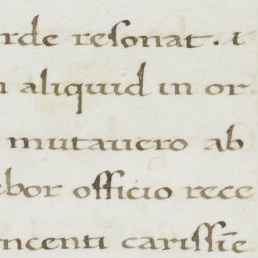 rde resonat. i
aliquid in or
mutavero ab
ebor officio rece
ncenti carissi͞e